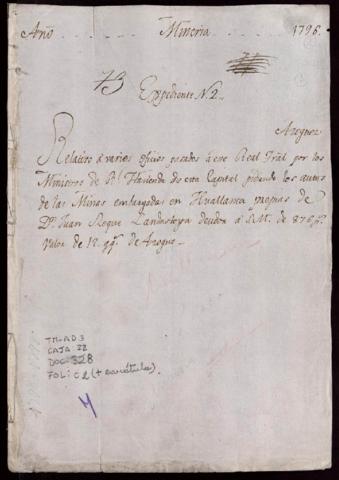 Año Mineria 1796.
73
Expediente N. 2
Azogues
Relativo á varios oficios pasados á este Real Trial por los
Ministros de Rl Hacienda de esta Capital pidiendo los autos
de las Minas embargadas en Huallanca propias de
Dn. Juan Roque deudor á S.M. de 876 ps.
valor de 12 qqs de Azogue
TM-AD3
CAJA: 22
DOC: 328
FOL: 02 (+ carátula).